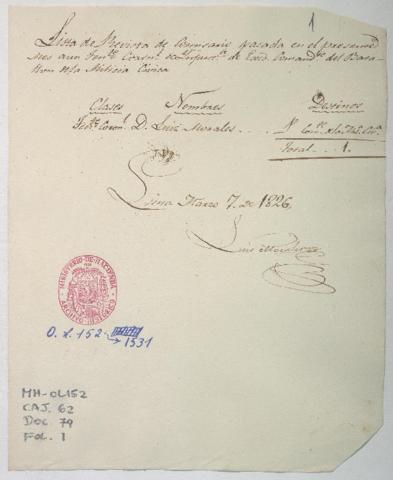 1
Lista de Revista de Comisario pasada en el presente
Mes a un Ten.te Coron.l de Exto. Comand.te del Bata
llon de la Milicia Civica
Clases Nombres Destinos
Ten.te Coron.l D. Luis Morales
Total . . . 1.
Lima Marzo 7. de 1826
Luis Morales
MINISTERIO-DE-HACIENDA
ARCHIVO HISTORICO
O.L. 152-
1531
MH-OL152
CAJ. 62
DOC. 79
FOL. 1